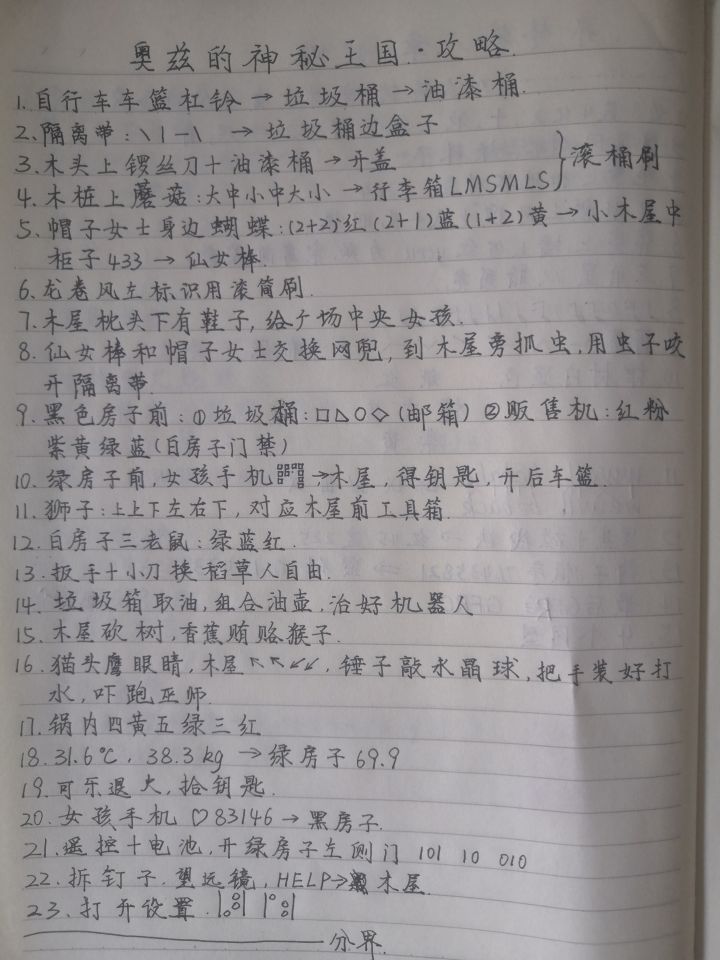 奥兹的神秘王国·攻略.
1.自行车车篮杠铃→垃圾桶→油漆桶.
2.隔离带:\|-\ →垃圾桶边盒子
3.木头上锣丝刀+油漆桶→开盖
4.木桩上蘑菇:大中小中大小→行李箱LMSMLS}滚桶刷
5.帽子女士身边蝴蝶:(2+2)红(2+1)蓝(1+2)黄→小木屋中
柜子433→仙女棒.
6.龙卷风左标识用滚筒刷.
7.木屋枕头下有鞋子,给广场中央女孩.
8.仙女棒和帽子女士交换网兜,到木屋旁抓虫,用虫子咬
开隔离带.
9.黑色房子前:①垃圾桶:□△○◇(邮箱)②贩售机:红粉
紫黄绿蓝(白房子门禁)
10.绿房子前,女孩手机→木屋,得钥匙,开后车篮.
11.狮子:上上下左右下,对应木屋前工具箱.
12.白房子三老鼠:绿蓝红.
13.扳手+小刀换稻草人自由.
14.垃圾箱取油,组合油壶,治好机器人
15.木屋砍树,香蕉贿赂猴子.
16.猫头鹰眼睛,木屋↖↖↙↙,锤子敲水晶球,把手装好打
水,吓跑巫师.
17.锅内四黄五绿三红
18.31.6℃,38.3kg→绿房子69.9
19.可乐退火,拾钥匙.
20.女孩手机♡83146→黑房子.
21.遥控+电池,开绿房子左侧门 101 10 010
22.拆钉子.望远镜,HELP→木屋
23.打开设置.
分界.